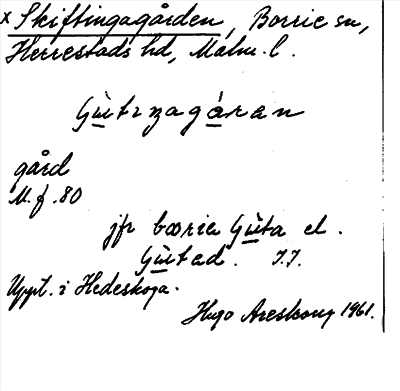 x Skiftingagården, Borrie sn,
Herrestads hd, Malm. l.
gård
M. f. 80
jfr bœrie Gùta el.
Gùtad. I.I.
Uppt. i Hedeskoga.
Hugo Areskoug 1961.